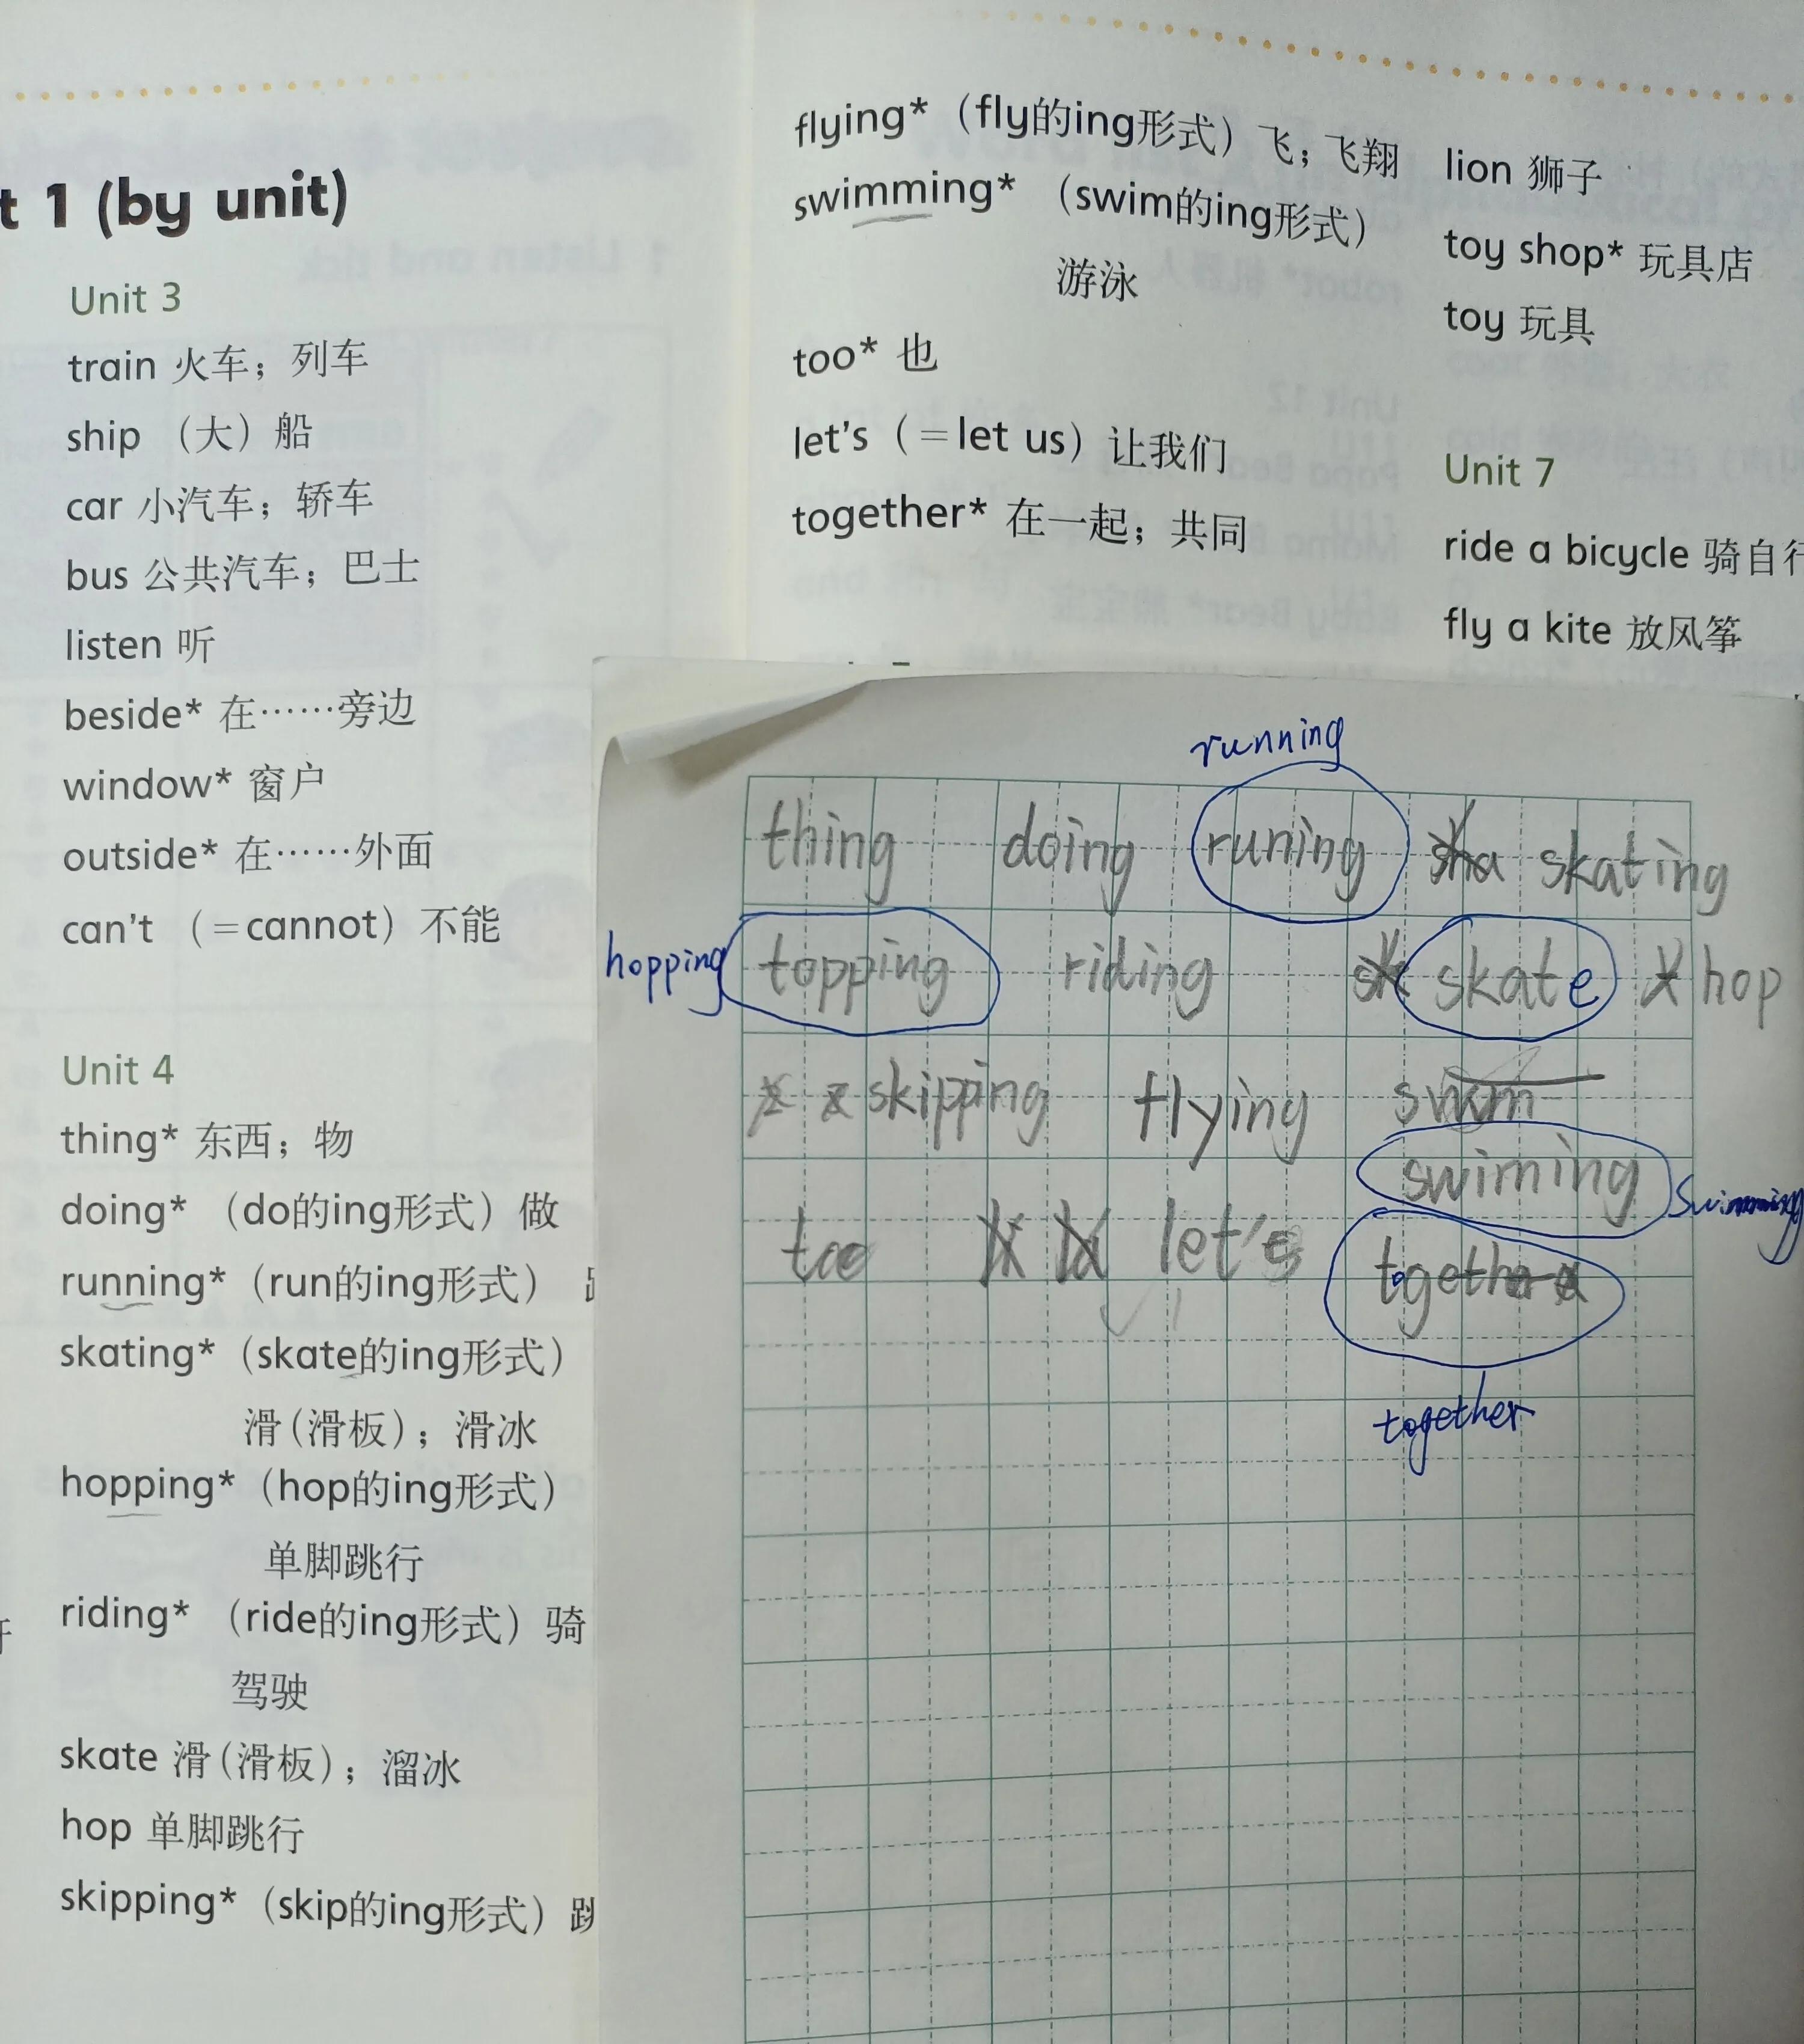 t 1 (by unit)
Unit 3
train 火车；列车
ship （大）船
car 小汽车；轿车
bus 公共汽车；巴士
listen 听
beside* 在……旁边
window* 窗户
outside* 在……外面
can't （=cannot）不能
Unit 4
thing* 东西；物
doing* （do的ing形式）做
running*（run的ing形式）
skating*（skate的ing形式）
滑(滑板)；滑冰
hopping*（hop的ing形式）
单脚跳行
riding* （ride的ing形式）骑
驾驶
skate 滑(滑板)；溜冰
hop 单脚跳行
skipping*（skip的ing形式）跳
flying*（fly的ing形式）飞；飞翔
swimming* （swim的ing形式）
游泳
too* 也
let's（=let us）让我们
together* 在一起；共同
lion 狮子
toy shop* 玩具店
toy 玩具
Unit 7
ride a bicycle 骑自行
fly a kite 放风筝
running
thing doing runing skating
hopping topping riding skate hop
skipping flying
swiming swimming
too let's together
together